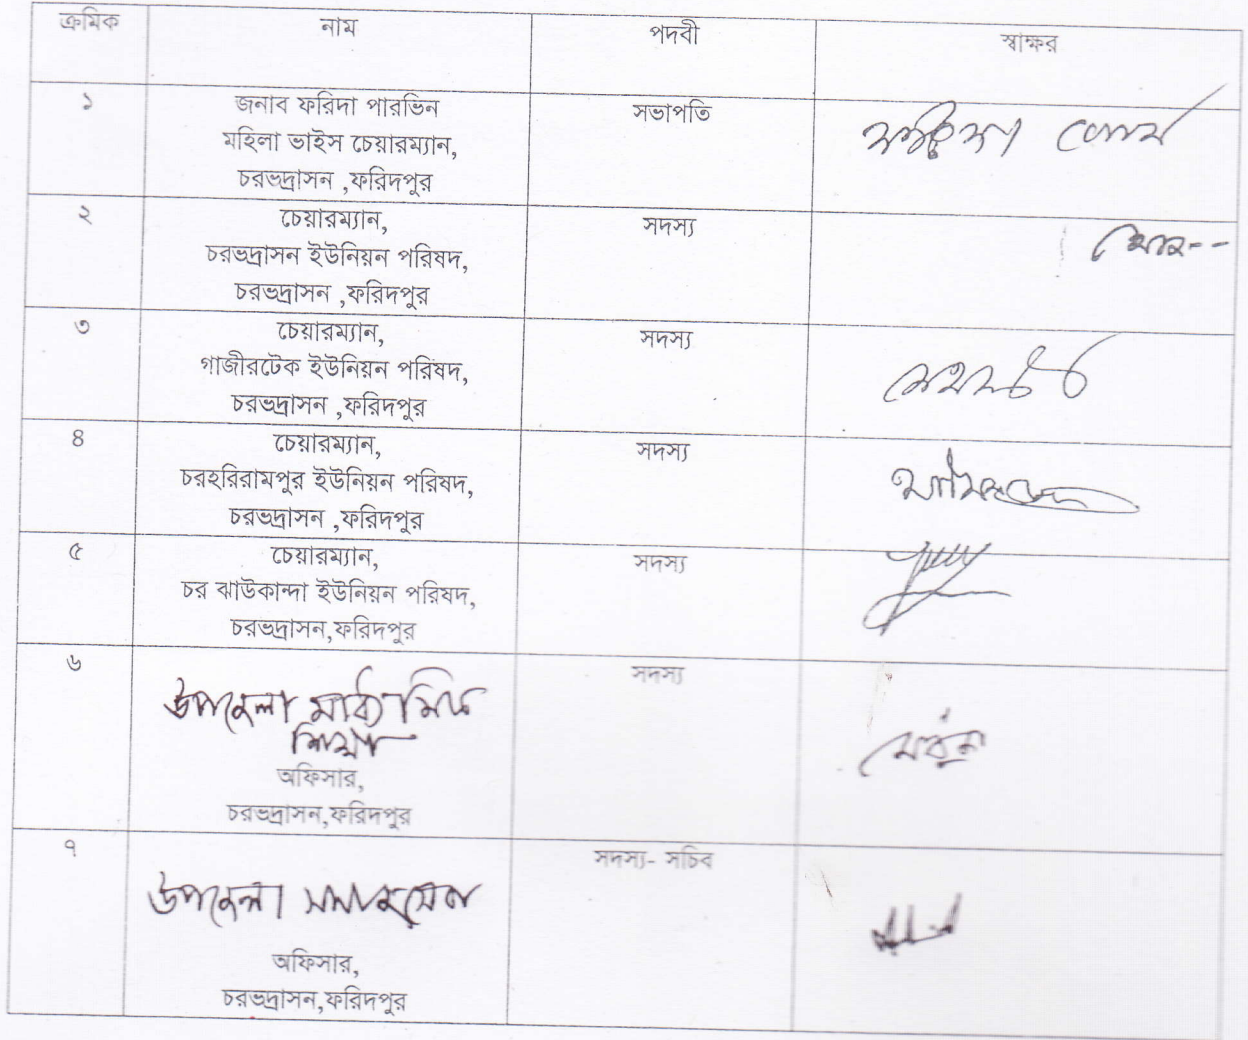 ক্রমিক নাম পদবী স্বাক্ষর
১ জনাব ফরিদা পারভিন সভাপতি
মহিলা ভাইস চেয়ারম্যান,
চরভদ্রাসন ,ফরিদপুর
২ চেয়ারম্যান, সদস্য
চরভদ্রাসন ইউনিয়ন পরিষদ,
চরভদ্রাসন ,ফরিদপুর
৩ চেয়ারম্যান, সদস্য
গাজীরটেক ইউনিয়ন পরিষদ,
চরভদ্রাসন ,ফরিদপুর
৪ চেয়ারম্যান, সদস্য
চরহরিরামপুর ইউনিয়ন পরিষদ,
চরভদ্রাসন ,ফরিদপুর
৫ চেয়ারম্যান, সদস্য
চর ঝাউকান্দা ইউনিয়ন পরিষদ,
চরভদ্রাসন,ফরিদপুর
৬ সদস্য
উপজেলা মাধ্যমিক
শিক্ষা
অফিসার,
চরভদ্রাসন,ফরিদপুর
৭ সদস্য- সচিব
উপজেলা সমাজসেবা
অফিসার,
চরভদ্রাসন,ফরিদপুর